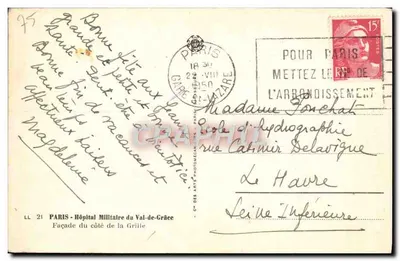 75
Bonne fête aux Jeans
grande et petite et bonne
Santé
Bonne fin de vacances et
beau temps
affectueux baisers
Magdeleine
PARIS
18 H
22 - VIII
1950
GARE ST-LAZARE
15F
POUR PARIS
METTEZ LE N° DE
L'ARRONDISSEMENT
Madame Ponchat
Ecole d'hydrographie
rue Casimir Delavigne
Le Havre
Seine Inférieure
LL 21 PARIS - Hôpital Militaire du Val-de-Grâce
Façade du côté de la Grille